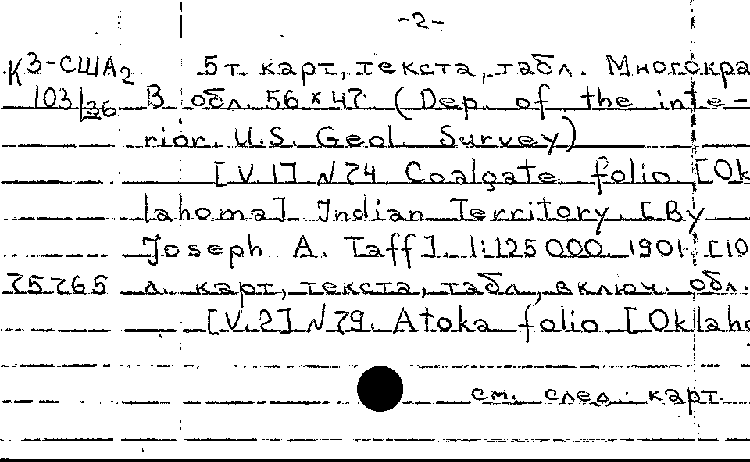 -2-
К3-США2 5т. карт, текста, табл. Многокра
103/36 В обл. 56×47. (Dep. of the inte-
rior. U.S. Geol. Survey)
[V.1] N74 Coalgate folio [Ok
lahoma] Indian Territory. [By
Joseph A. Taff]. 1:125000. 1901. [10
75765 л. карт, текста, табл., включ. обл.
[V.2] N79. Atoka folio [Oklaho
см. след. карт.